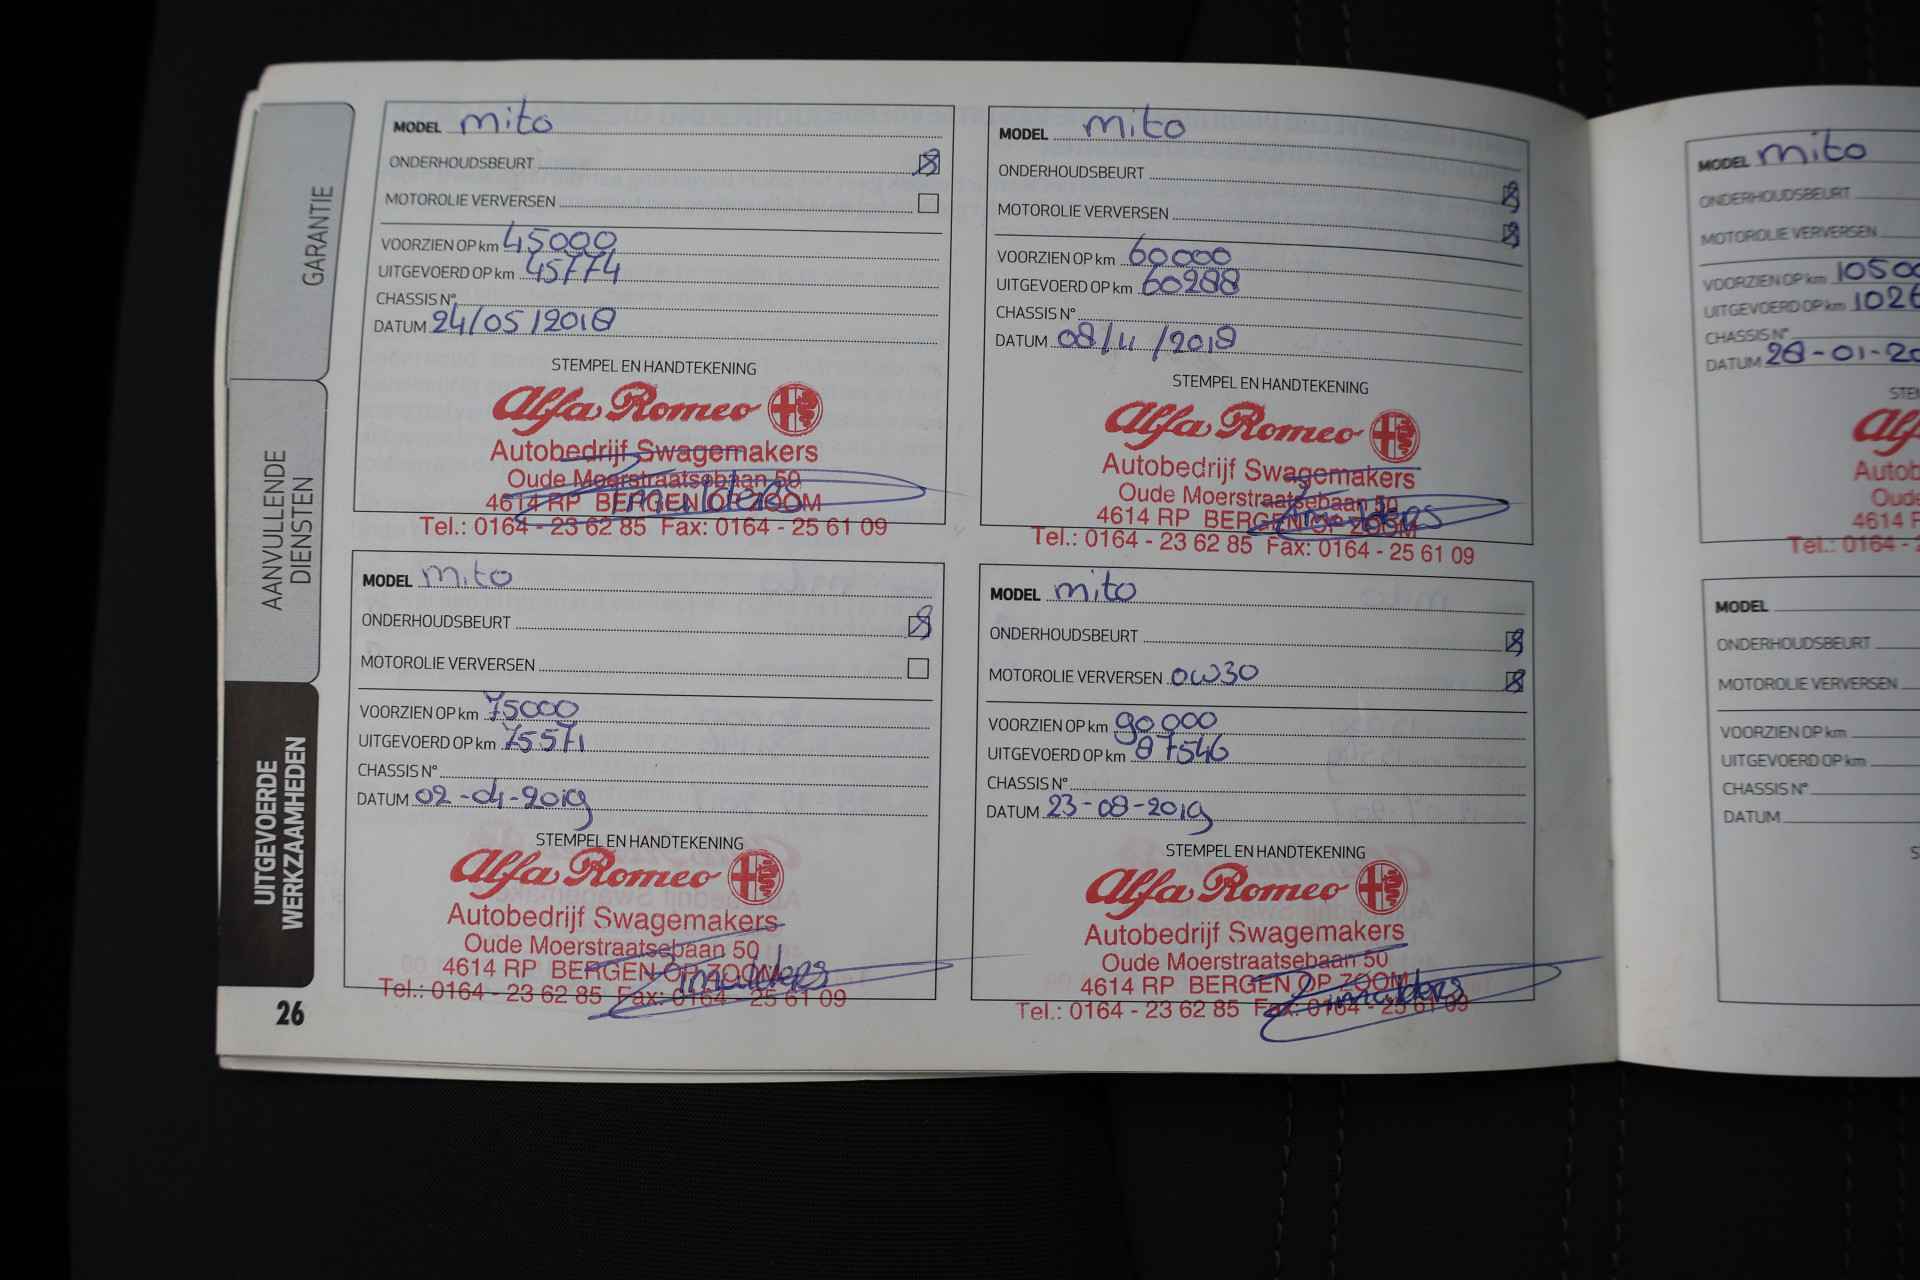 GARANTIE
AANVULLENDE
DIENSTEN
UITGEVOERDE
WERKZAAMHEDEN
26
MODEL mito
ONDERHOUDSBEURT
MOTOROLIE VERVERSEN
VOORZIEN OP km 45000
UITGEVOERD OP km 45774
CHASSIS N°
DATUM 24/05/2018
STEMPEL EN HANDTEKENING
Alfa Romeo
Autobedrijf Swagemakers
Oude Moerstraatsebaan 50
4614 RP BERGEN OP ZOOM
Tel.: 0164 - 23 62 85 Fax: 0164 - 25 61 09
MODEL mito
ONDERHOUDSBEURT
MOTOROLIE VERVERSEN
VOORZIEN OP km 60000
UITGEVOERD OP km 60288
CHASSIS N°
DATUM 08/11/2018
STEMPEL EN HANDTEKENING
Alfa Romeo
Autobedrijf Swagemakers
Oude Moerstraatsebaan 50
4614 RP BERGEN OP ZOOM
Tel.: 0164 - 23 62 85 Fax: 0164 - 25 61 09
MODEL mito
ONDERHOUDSBEURT
MOTOROLIE VERVERSEN
VOORZIEN OP km 75000
UITGEVOERD OP km 75571
CHASSIS N°
DATUM 02-04-2019
STEMPEL EN HANDTEKENING
Alfa Romeo
Autobedrijf Swagemakers
Oude Moerstraatsebaan 50
4614 RP BERGEN OP ZOOM
Tel.: 0164 - 23 62 85 Fax: 0164 - 25 61 09
MODEL mito
ONDERHOUDSBEURT
MOTOROLIE VERVERSEN 0W30
VOORZIEN OP km 90000
UITGEVOERD OP km 87546
CHASSIS N°
DATUM 23-08-2019
STEMPEL EN HANDTEKENING
Alfa Romeo
Autobedrijf Swagemakers
Oude Moerstraatsebaan 50
4614 RP BERGEN OP ZOOM
Tel.: 0164 - 23 62 85 Fax: 0164 - 25 61 09
MODEL mito
ONDERHOUDSBEURT
MOTOROLIE VERVERSEN
VOORZIEN OP km 10500
UITGEVOERD OP km 1026
CHASSIS N°
DATUM 28-01-20
STE
Alf
Autob
Oude
4614 R
Tel.: 0164 - 2
MODEL
ONDERHOUDSBEURT
MOTOROLIE VERVERSEN
VOORZIEN OP km
UITGEVOERD OP km
CHASSIS N°
DATUM
S